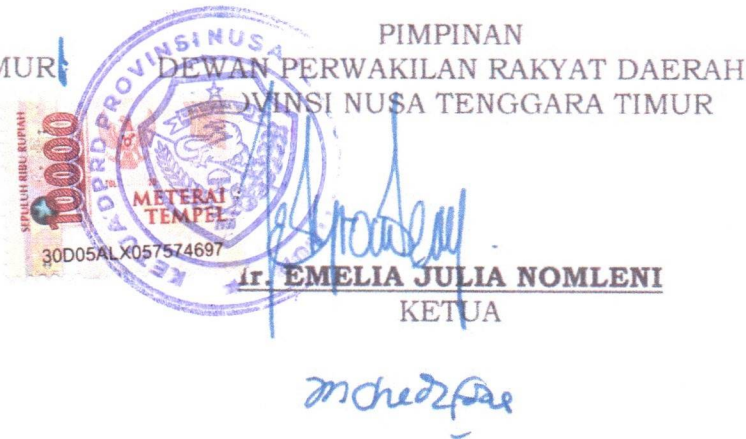 PIMPINAN
MUR
DEWAN PERWAKILAN RAKYAT DAERAH
OVINSI NUSA TENGGARA TIMUR
KETUA DPRD PROVINSI NUSA
SEPULUH RIBU RUPIAH
10000
METERAI
TEMPEL
30D05ALX057574697
Ir. EMELIA JULIA NOMLENI
KETUA